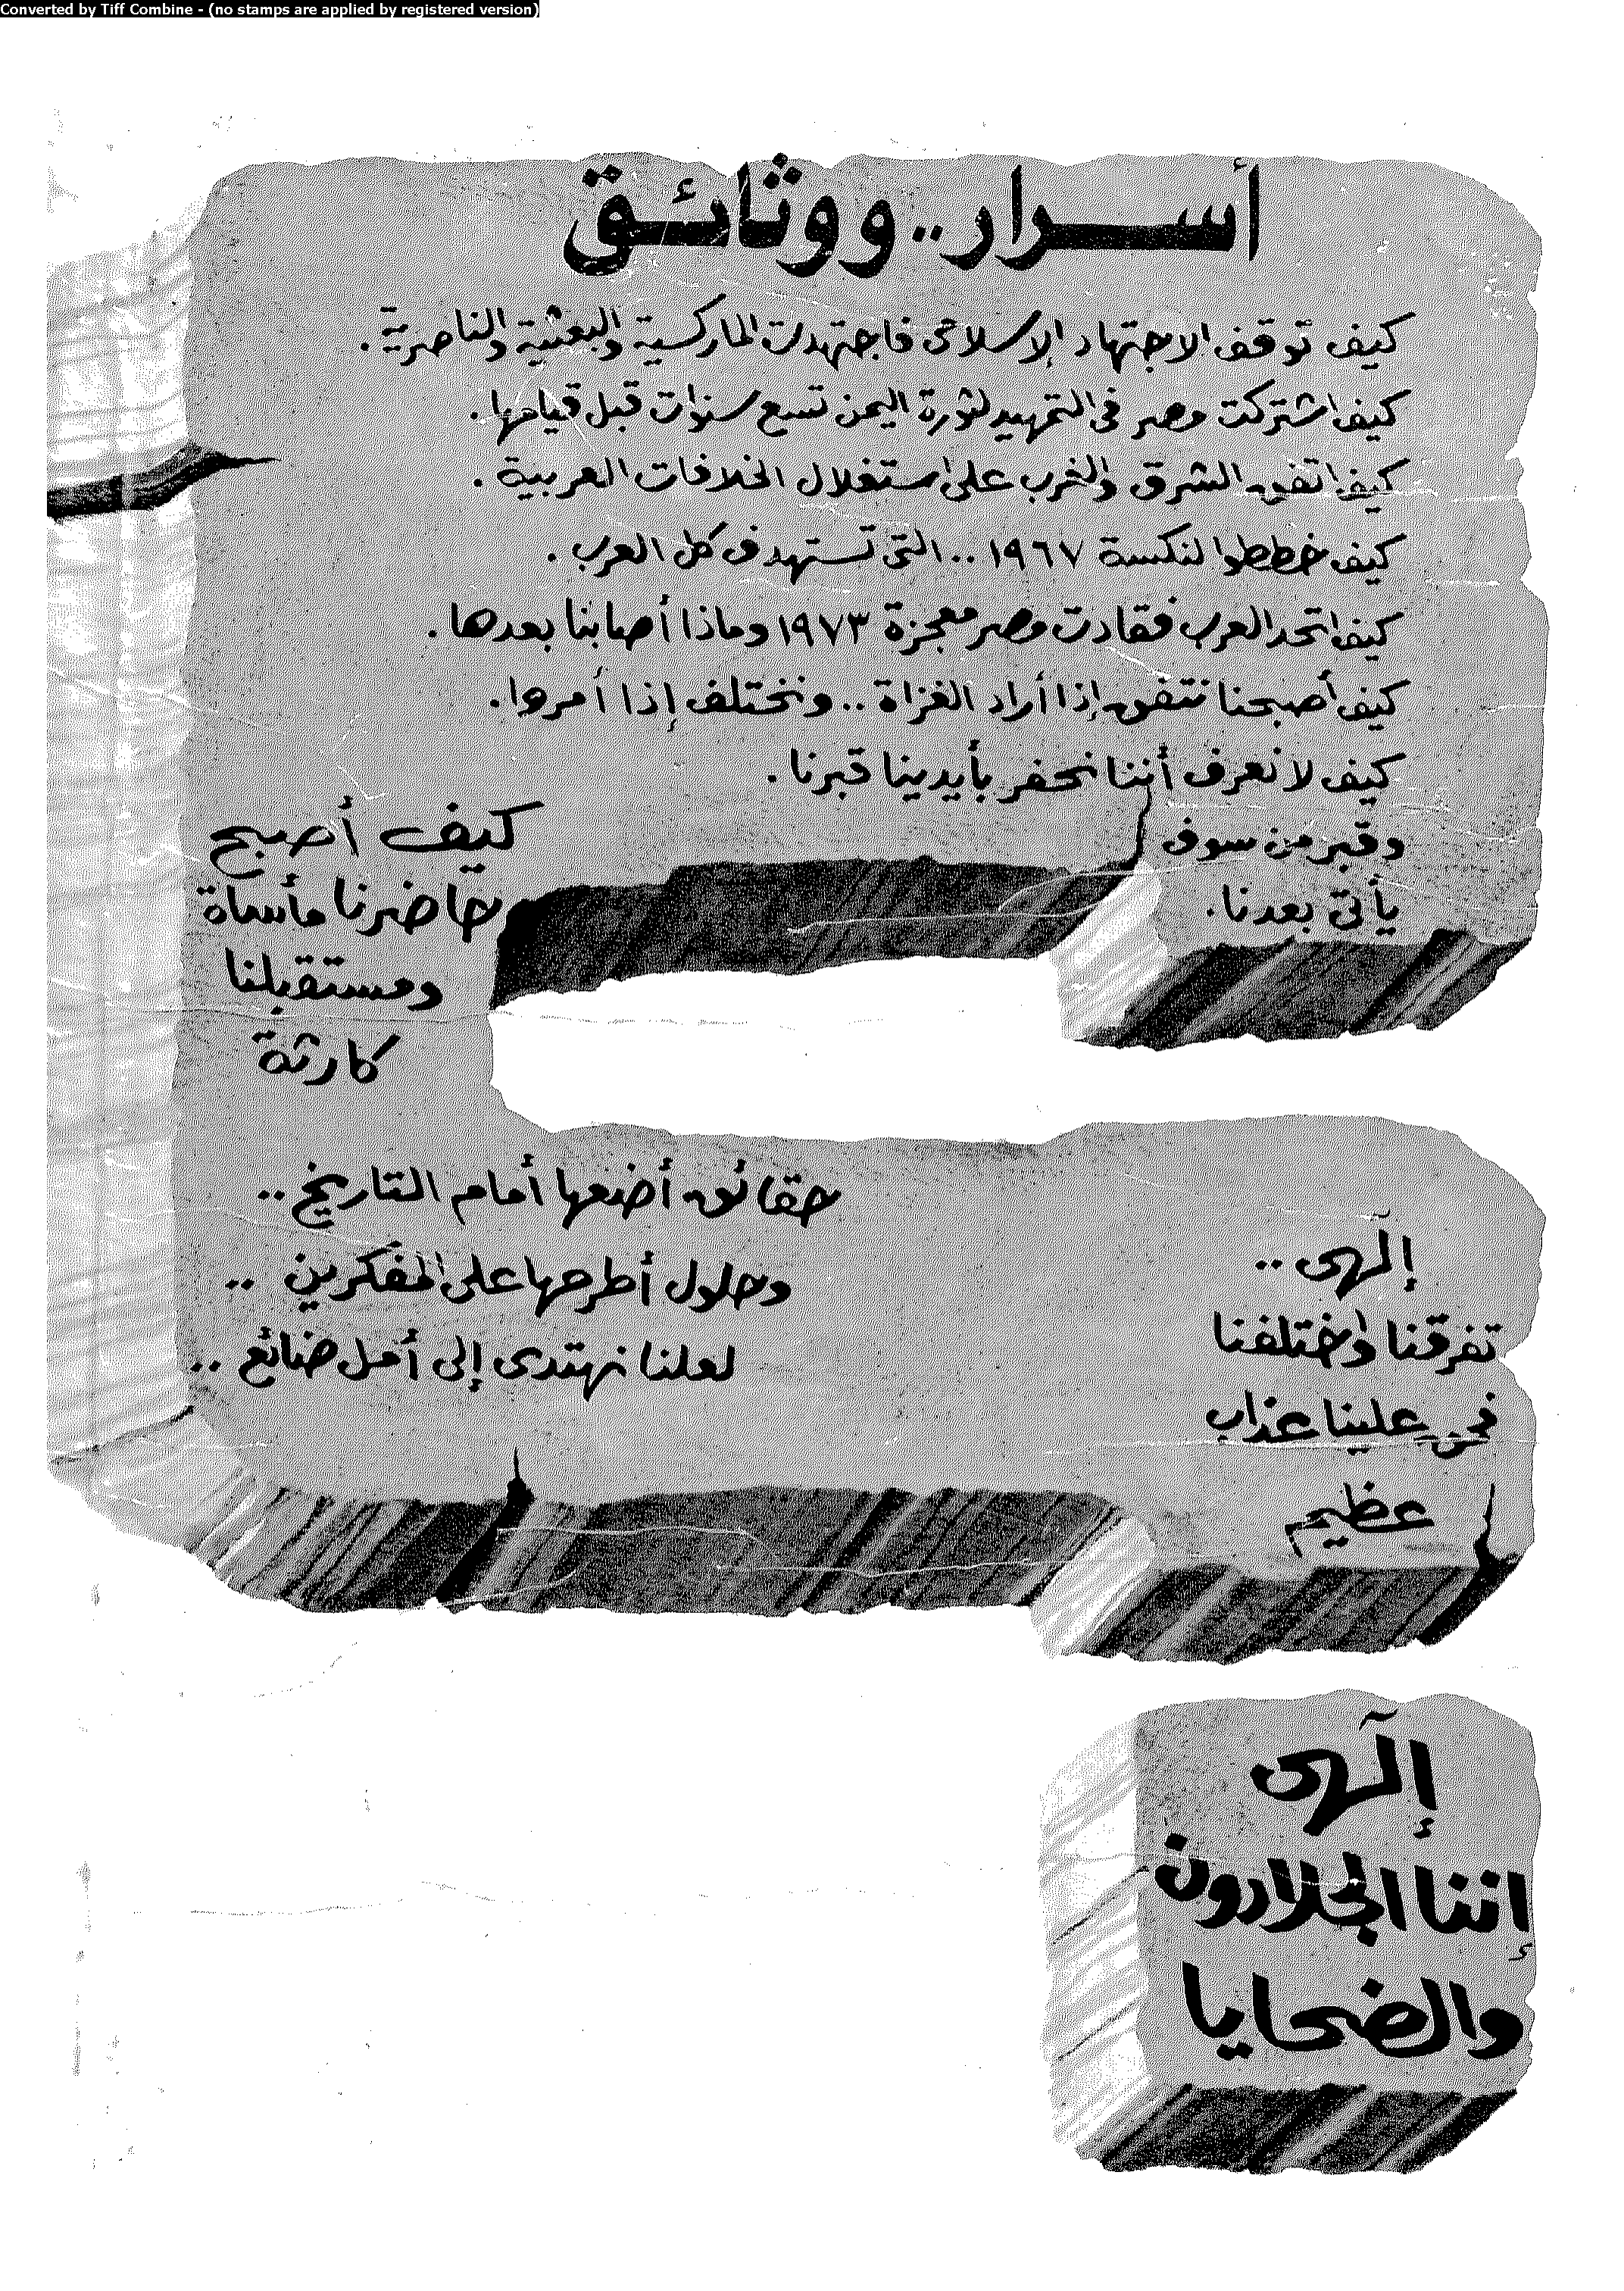 Converted by Tiff Combine - (no stamps are applied by registered version)
أسرار .. ووثائق
كيف توقف الاجتهاد الإسلامى فاجتهدت الماركسية والبعثية والناصرية .
كيف اشتركت مصر فى التمهيد لثورة اليمن تسع سنوات قبل قيامها .
كيف اتفق الشرق والغرب على استغلال الخلافات العربية .
كيف خططوا لنكسة ١٩٦٧ .. التى تستهدف كل العرب .
كيف اتحد العرب فقادت مصر معجزة ١٩٧٣ وماذا أصابنا بعدها .
كيف أصبحنا نتفق إذا أراد الغزاة .. ونختلف إذا أمروا .
كيف لا نعرف أننا نحفر بأيدينا قبرنا .
وقبر من سوف
يأتى بعدنا .
كيف أصبح
حاضرنا مأساة
ومستقبلنا
كارثة
حقائق أضعها أمام التاريخ ..
وحلول أطرحها على المفكرين ..
لعلنا نهتدى إلى أمل ضائع ..
إلٓهى ..
تفرقنا واختلفنا
فحق علينا عذاب
عظيم
إلٓهى
إننا الجلادون
والضحايا